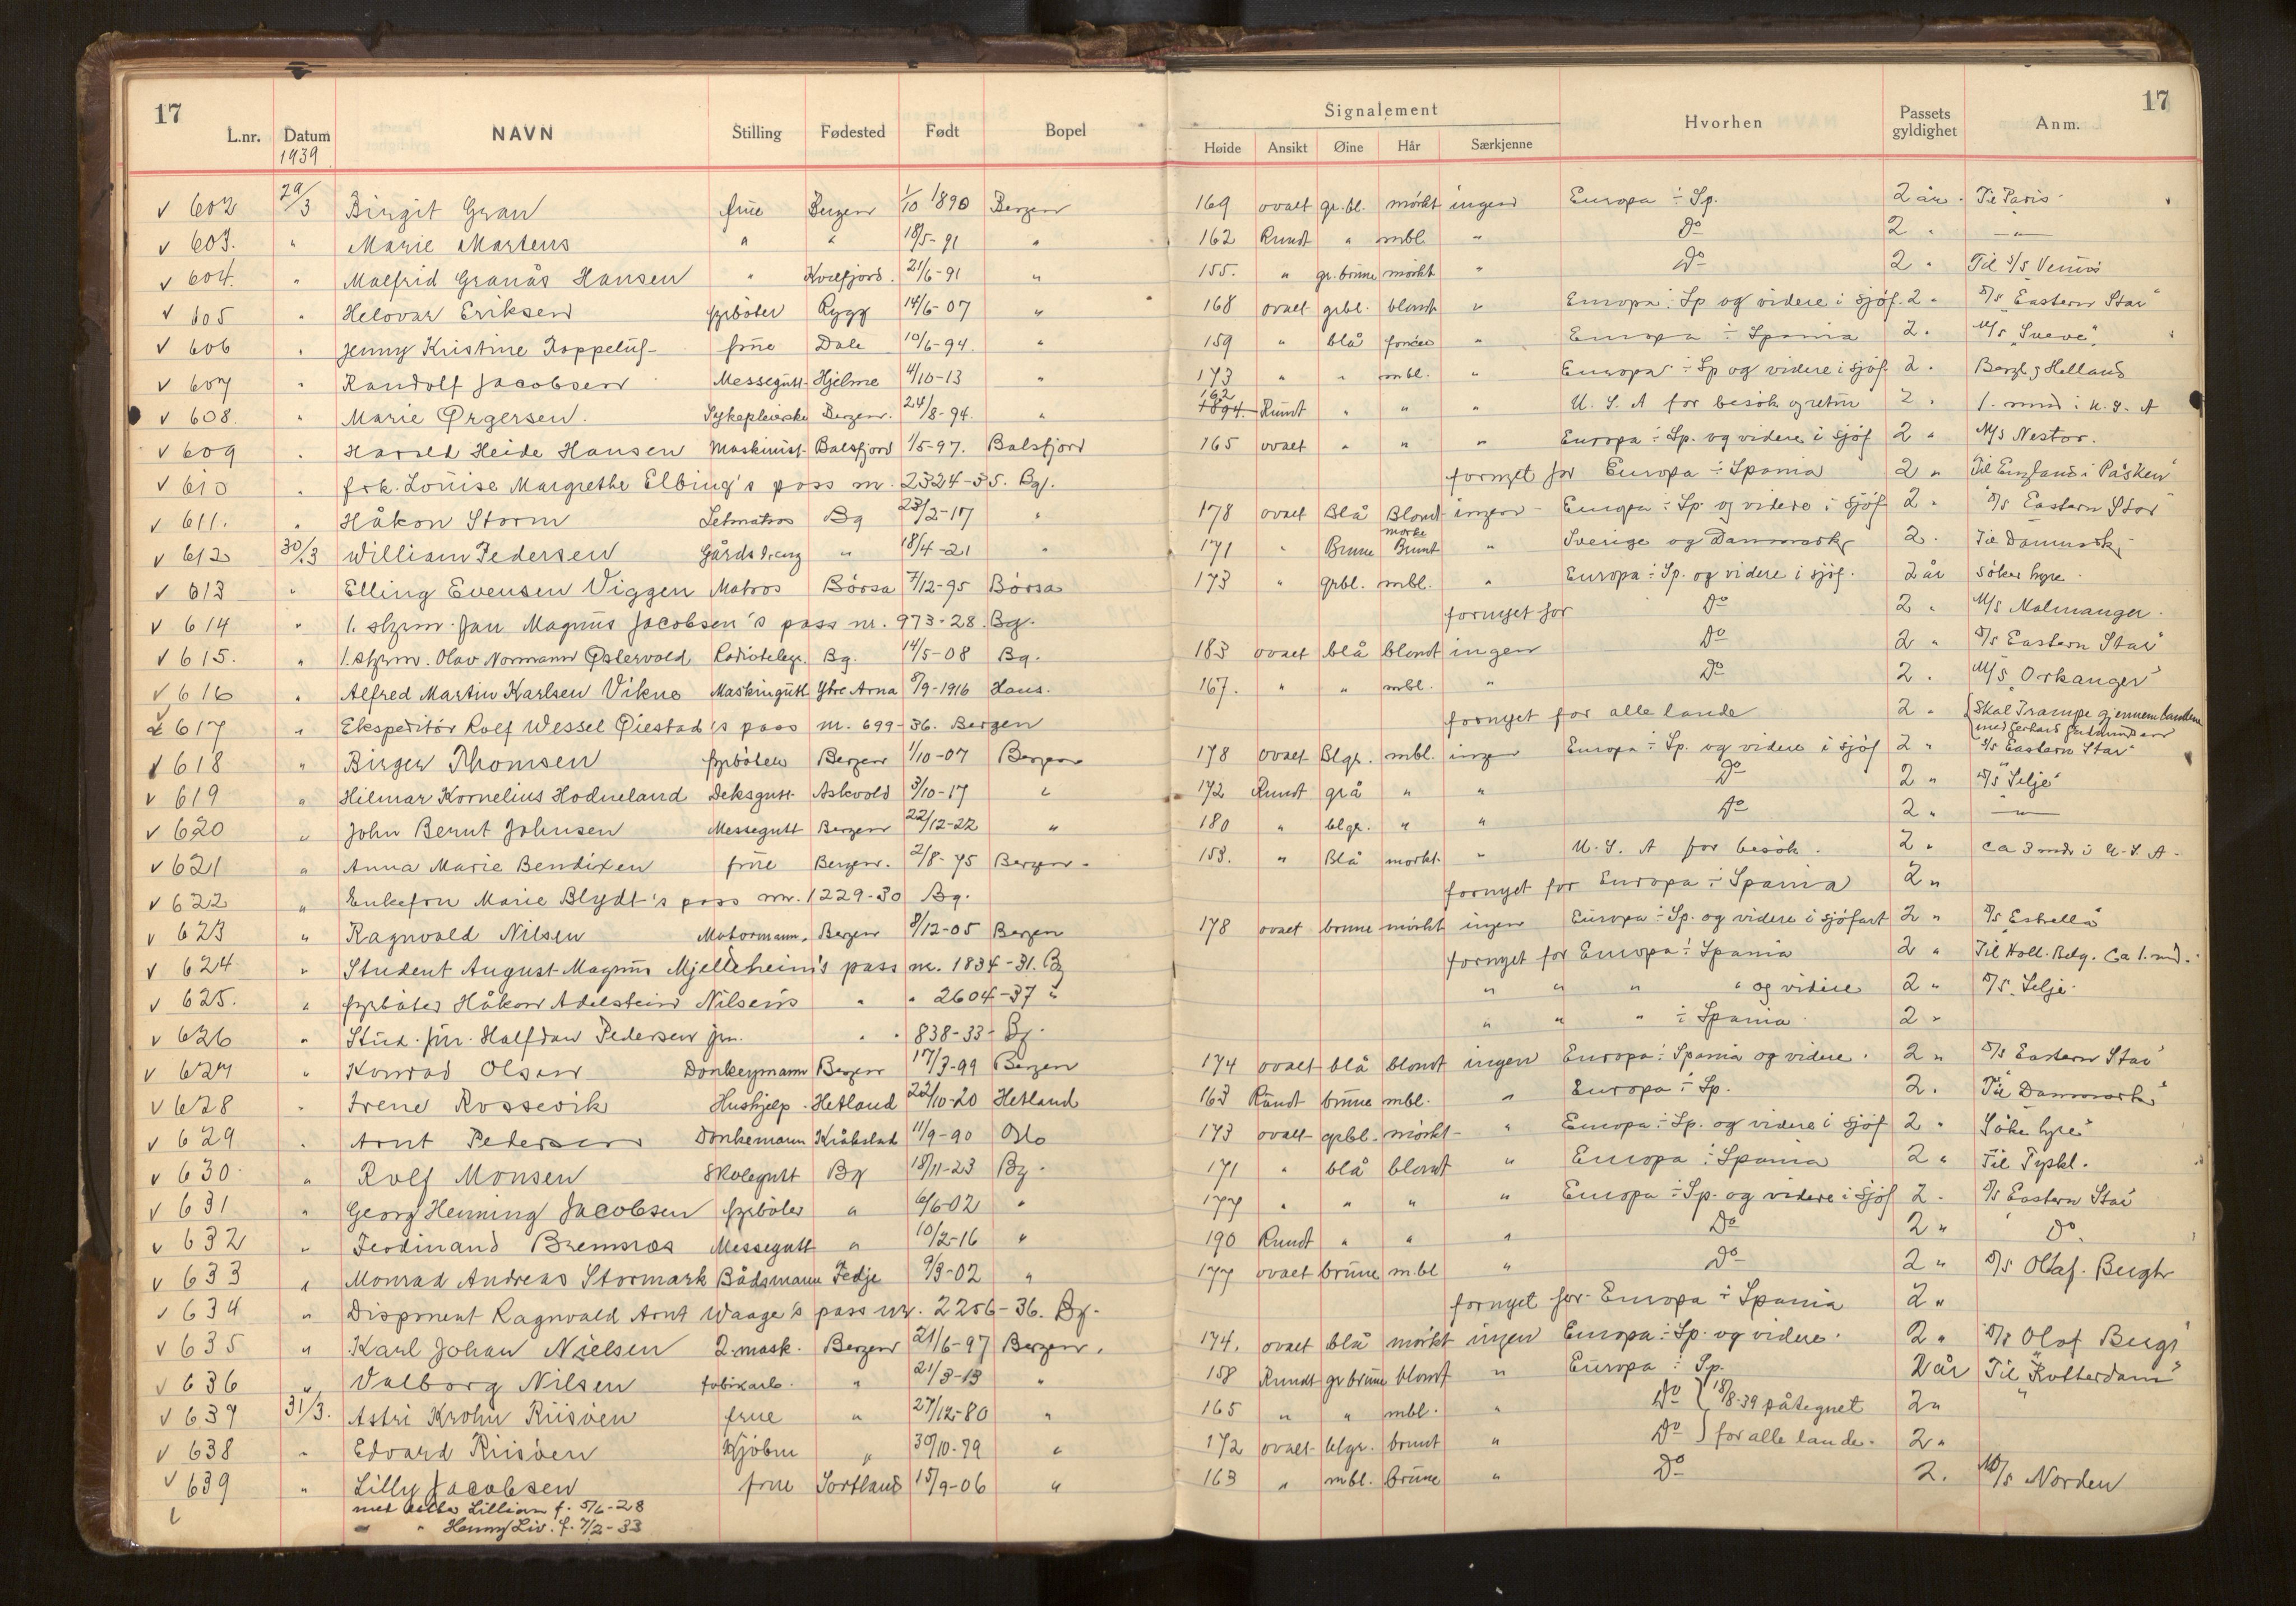 17 17
Signalement
L.nr. Datum NAVN Stilling Fødested Født Bopel Høide Ansikt Øine Hår Særkjenne Hvorhen Passets gyldighet Anm.
1939
v 602 29/3 Birgit Gran frue Bergen 1/10 1890 Bergen 169 ovalt gr.bl. mörkt ingen Europa ÷ Sp. 2 år. Til Paris
v 603. " Marie Martens " " 18/5-91 " 162 Rundt " mbl. " Do 2 " — " —
v 604. " Malfrid Granås Hansen " Kvæfjord. 21/6-91 " 155. " gr.brune mörkt " Do 2 " Til S/S Venus
v 605 " Helovar Eriksen fyrböter Rygg 14/6-07 " 168 ovalt grbl. blondt " Europa ÷ Sp og videre i sjöf. 2 " S/S "Eastern Star"
v 606 " Jenny Kristine frue Dale 10/6-94. " 159 " blå " Europa ÷ Spania 2. M/S "Sveve"
v 607 " Randolf Jacobsen Messegutt Hjelme 4/10-13 " 173 " " mbl. " Europa ÷ Sp og videre i sjöf. 2. Bergh & Helland
v 608. " Marie Ørgersen. Sykepleierske Bergen. 24/8-94. " 162 1894. Rundt " " " U. S. A for besök og retur 2. 1. mnd i U. S. A
v 609 " Harald Heide Hansen Maskinist Balsfjord 1/5-97. Balsfjord 165 ovalt " " " Europa ÷ Sp. og videre i sjöf 2 " M/S Nestor.
v 610 " frk. Louise Margrethe Elbing's pass nr. 2324-35. Bg. fornyet for Europa ÷ Spania 2 " Til England i Påsken
v 611. " Håkon Storm Letmatros Bg 23/2-17 " 178 ovalt Blå Blondt ingen Europa ÷ Sp. og videre i sjöf 2 " S/S Eastern Star
v 612 30/3 William Pedersen Gårdsdreng " 18/4-21 " 171 " Brune mörke Brunt " Sverige og Danmark 2. Til Danmark
v 613 " Elling Evensen Viggen Matros Börsa 7/12-95 Börsa 173 " grbl. mbl. " Europa ÷ Sp. og videre i sjöf. 2 år söker hyre.
v 614 " 1. styrm. Jan Magnus Jacobsen's pass nr. 973-28. Bg. fornyet for Do 2 " M/S Malmanger.
v 615. " 1. styrm. Olav Normann Østervold Radioteleg. Bg. 14/5-08 Bg. 183 ovalt blå blondt ingen Do 2 " S/S Eastern Star
v 616 " Alfred Martin Karlsen Vikne Maskingutt Ytre Arna 8/9-1916 Haus. 167. " " mbl. " Do 2. M/S "Orkanger"
v 617 " Ekspeditör Rolf Wessel Øiestad's pass nr. 699-36. Bergen fornyet for alle lande 2 " Skal Trampe gjennem landene
med Gerhard Gudmundsen
v 618 " Birger Thomsen fyrböter Bergen 1/10-07 Bergen 178 ovalt Blgr. mbl. ingen Europa ÷ Sp. og videre i sjöf 2 " S/S Eastern Star
v 619 " Hilmar Kornelius Hodneland Deksgutt Askvold 3/10-17 " 172 Rundt grå " " Do 2 " S/S "Selje"
v 620 " John Bernt Johnsen Messegutt Bergen 22/12-22 " 180 " blgr. " " Do 2 " — " —
v 621 " Anna Marie Bendixen frue Bergen. 2/8-75 Bergen. 153. " Blå mörkt. " U. S. A for besök. 2 " ca 3 mndr i U. S. A.
v 622 " Enkefru Marie Blydt's pass nr. 1229-30 Bg. fornyet for Europa ÷ Spania 2 "
v 623 " Ragnvald Nilsen Motormann. Bergen 8/12-05 Bergen 178 ovalt brune mörkt ingen Europa ÷ Sp. og videre i sjöfart 2 " S/S "Estrella"
v 624 " Student August Magnus Mjelleheim's pass nr. 1834-31. Bg fornyet for Europa ÷ Spania 2 " Til Holl. Belg. Ca 1. md.
v 625. " fyrböter Håkon Adelstein Nilsen's " " 2604-37 " " " " " og videre 2 " S/S. Selje.
v 626 " Stud. jur. Halfdan Pedersen jun. " " 838-33-Bg. " " " ÷ Spania 2 "
v 627 " Konrad Olsen Donkeymann Bergen 17/3-99 Bergen 174 ovalt blå blondt ingen Europa ÷ Spania og videre. 2 " S/S Eastern Star
v 628 " Irene Rossevik Hushjelp. Hetland 22/10-20 Hetland 163 Rundt brune mbl. " Europa ÷ Sp. 2. Til Danmark
v 629 " Arnt Pedersen Donkemann Kråkstad 11/9-90 Oslo 173 ovalt grbl. mörkt " Europa ÷ Sp. og videre i sjöf 2 " Söke hyre
v 630. " Rolf Monsen Skolegutt Bg 18/11-23 Bg. 171 " blå blondt " Europa ÷ Spania 2 " Til Tyskl.
v 631 " Georg Henning Jacobsen fyrböter " 6/6-02 " 177 " " " " Europa ÷ Sp. og videre i sjöf 2. S/S Eastern Star
v 632 " Ferdinand Bremnes Messegutt " 10/2-16 " 190 Rundt " " " Do 2 " Do.
v 633 " Monrad Andreas Stormark Bådsmann Fedje 9/3-02 " 177 ovalt brune mbl " Do 2 " S/S Olaf. Bergh
v 634 " Disponent Ragnvald Arnt Waage's pass nr. 2256-36. Bg. fornyet for Europa ÷ Spania 2 "
v 635 " Karl Johan Nielsen 2. mask. Bergen 21/6-97 Bergen. 174. ovalt blå mörkt ingen Europa ÷ Sp. og videre. 2 " S/S Olaf Bergh
v 636 " Valborg Nilsen fabrikarb. " 21/3-13 " 158 Rundt gr brune blondt " Europa ÷ Sp. 2 år Til "Rotterdam"
v 637 31/3. Astri Krohn Riisöen frue " 27/12-80 " 165 " " mbl. " Do 18/8-39 påtegnet 2 " "
v 638 " Edvard Riisöen Kjöbm " 30/10-79 " 172 ovalt blgr. brunt " Do for alle lande. 2 "
v 639 " Lilly Jacobsen frue Sortland 15/9-06 " 163 " mbl. brune " Do 2. M/S Norden
med datter Lillian f. 5/6-28
" " Henny Liv. f. 7/2-33